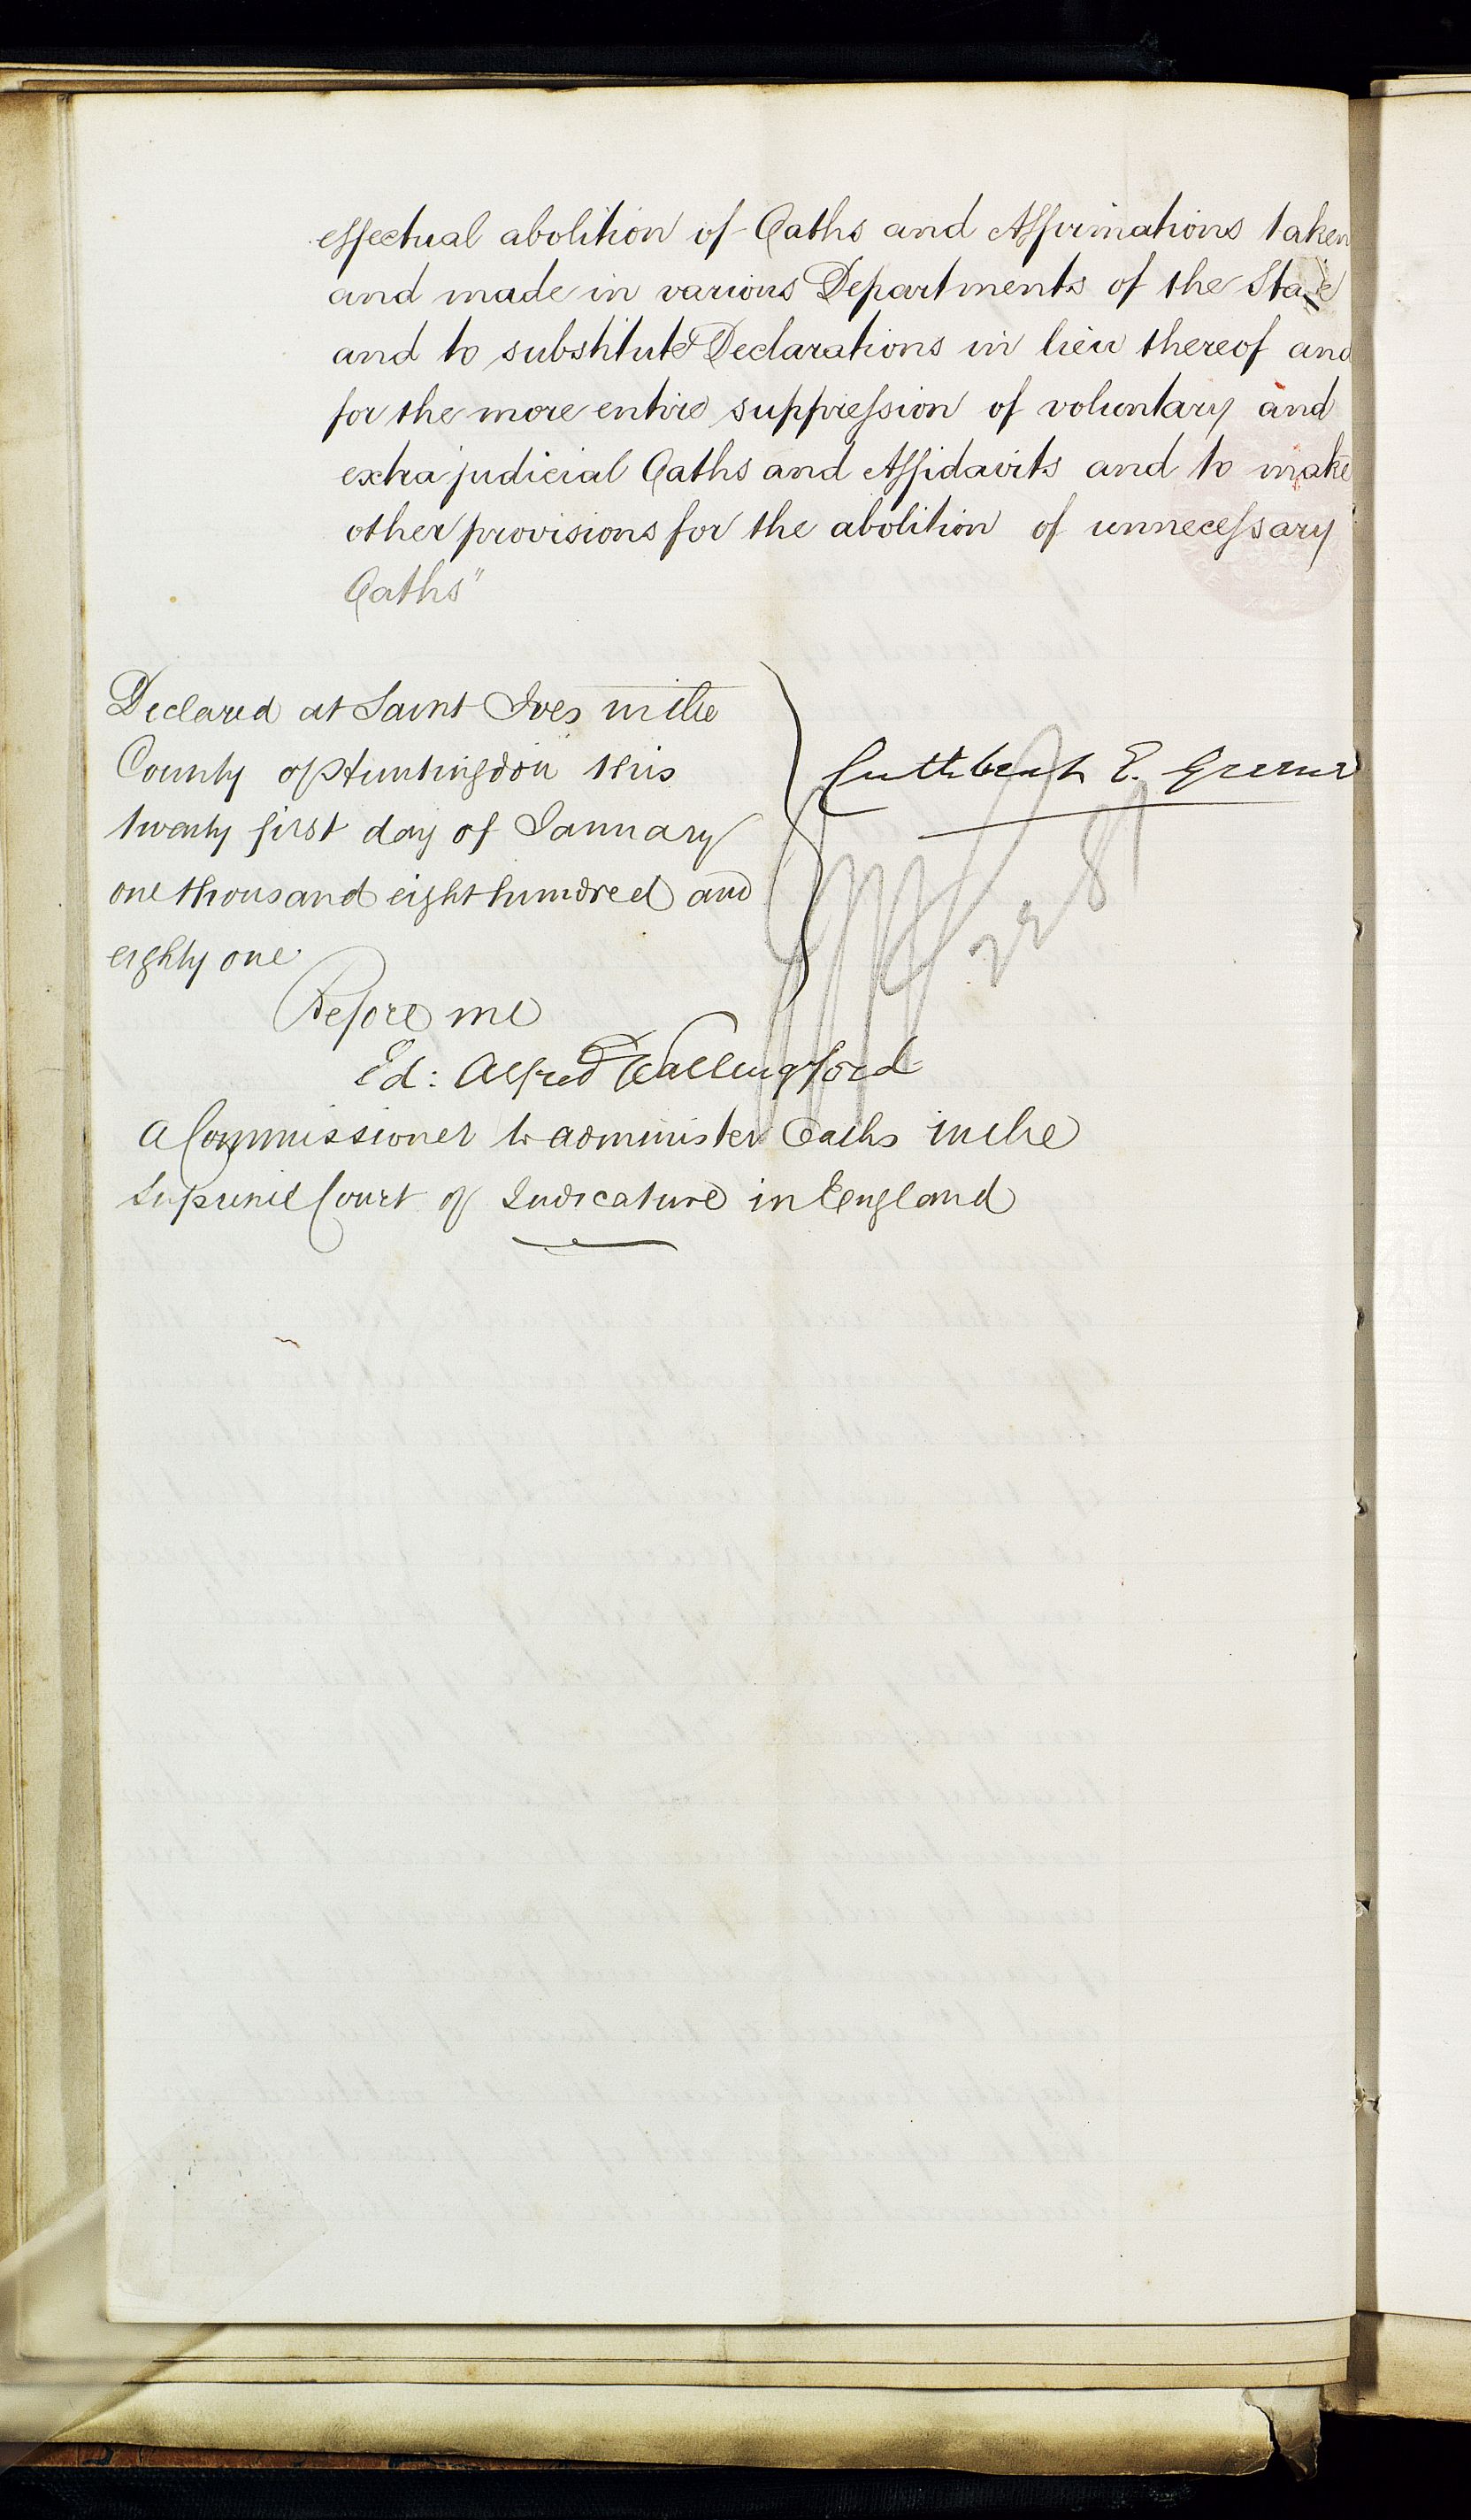 effectual abolition of Oaths and Affirmations taken
and made in various Departments of the State
and to substitute Declarations in lieu thereof and
for the more entire suppression of voluntary and
extra judicial Oaths and Affidavits and to make
other provisions for the abolition of unnecessary
Oaths"
Declared at Saint Ives in the
County of Huntingdon this
twenty first day of January
one thousand eight hundred and
eighty one
Cuthbert E.
Before me
Ed: Alfred Wallingford
A Commissioner to administer Oaths in the
Supreme Court of Judicature in England